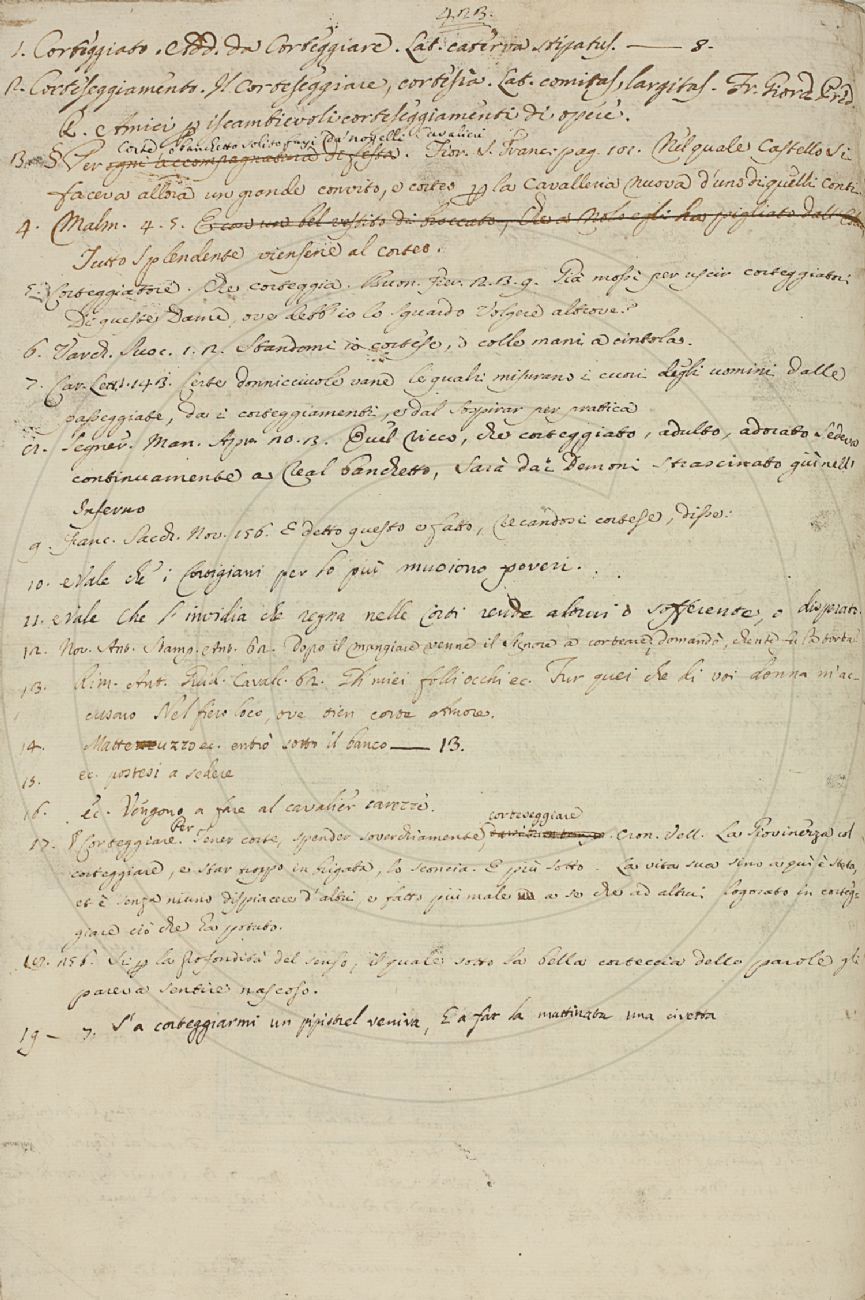 423.
1. Corteggiato. Add. da Corteggiare. Lat. caterva stipatus. — 8.
2. Corteseggiamento. Il Corteseggiare, cortesia. Lat. comitas, largitas. Fr. Giord. Pred.
R. Amici p iscambievoli corteseggiamenti di opere.
Corte o banchetto solito farsi da' novelli Cavalieri
3. § Per ogni accompagnatura di festa. Fior. S. Franc. pag. 101. Nel quale Castello si
faceva allora un grande convito, e corteo p la Cavalleria nuova d'uno di quelli Conti.
4. Malm. 4. 5. E con un bel vestito di broccato, Che a nolo egli ha pigliato dall'
Tutto splendente viensene al corteo.
5. Corteggiatore. Che corteggia. Buon. Fier. 2. 3. 9. Già mossi per uscir corteggiatori
Di queste Dame, ove debb'io lo sguardo Volgere altrove?
6. Varch. Suoc. 1. 2. Standomi io cortese, o colle mani a cintola.
7. Car. Lett. 1. 43. Certe donnicciuole vane le quali misurano i cuori degli uomini dalle
passeggiate, da i corteggiamenti, e dal sospirar per prattica
8. Segner. Man. Apr. 20. 3. Quel Ricco, che corteggiato, adulto, adorato sedeva
continuamente a Real banchetto, sarà dai Demoni strascinato giù nell'
Inferno
9. Franc. Sacch. Nov. 156. E detto questo e fatto, recandosi cortese, disse:
10. Vale che i Cortigiani per lo più muoiono poveri.
11. Vale Che l'invidia che regna nelle Corti rende altrui o sofferente, o disperat.
12. Nov. Ant. Stamp. Ant. 62. Dopo il mangiare venne il Signore a corteare, domandò, chente fu
13. Rim. Ant. Guid. Cavalc. 62. Gli miei folli occhi ec. Fur quei che di voi donna m'ac-
cusaro Nel fiero loco, ove tien corte Amore.
14. Matteuzzo ec. entrò sotto il banco — 13.
15. ec. postesi a sedere
16. Ec. Vengono a fare al cavalier carezze.
corteseggiare
17. § Corteggiare. Per Tener corte, spender soverchiamente, . Cron. Vell. La Giovinezza col
corteggiare, e star troppo in brigata, lo sconcia. E più sotto. La vita sua sino a qui è stata,
et è senza niuno dispiacere d'altri, e fatto più male a se che ad altrui logorato in corteg-
giare ciò che ha potuto.
18. 156. Si p la profondità del senso, il quale sotto la bella corteccia delle parole gli
pareva sentire nascoso.
19 — 7. S'a corteggiarmi un pipistrel veniva, E a far la mattinata una civetta